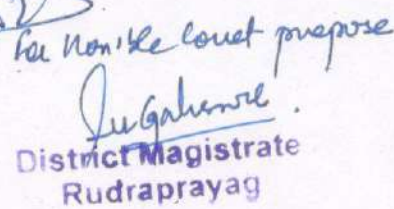 For Hon'ble Court purpose
District Magistrate
Rudraprayag